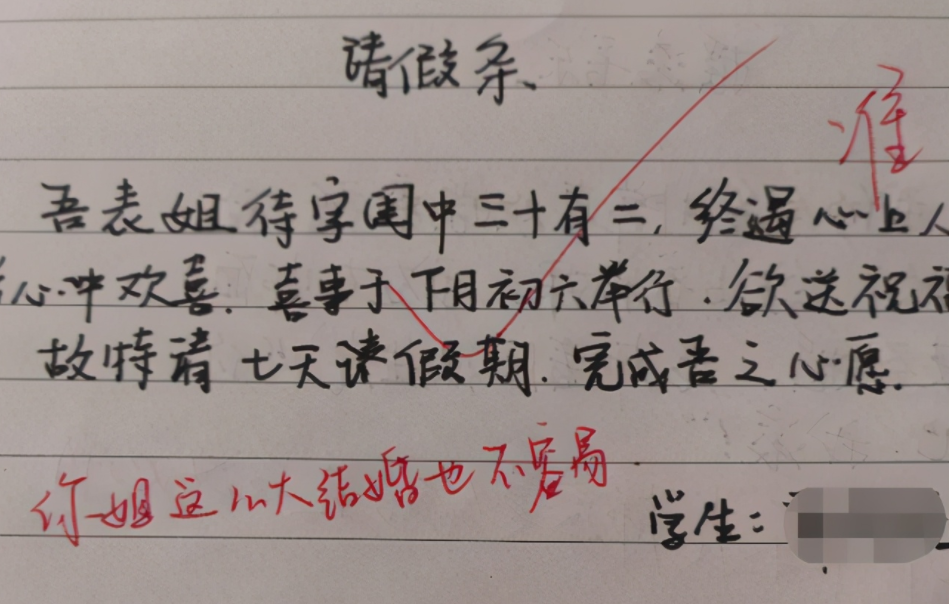 请假条
准
吾表姐待字闺中三十有二,终遇心上人
心中欢喜.喜事于下月初六举行.欲送祝福
故特请七天请假期.完成吾之心愿.
你姐这么大结婚也不容易
学生: